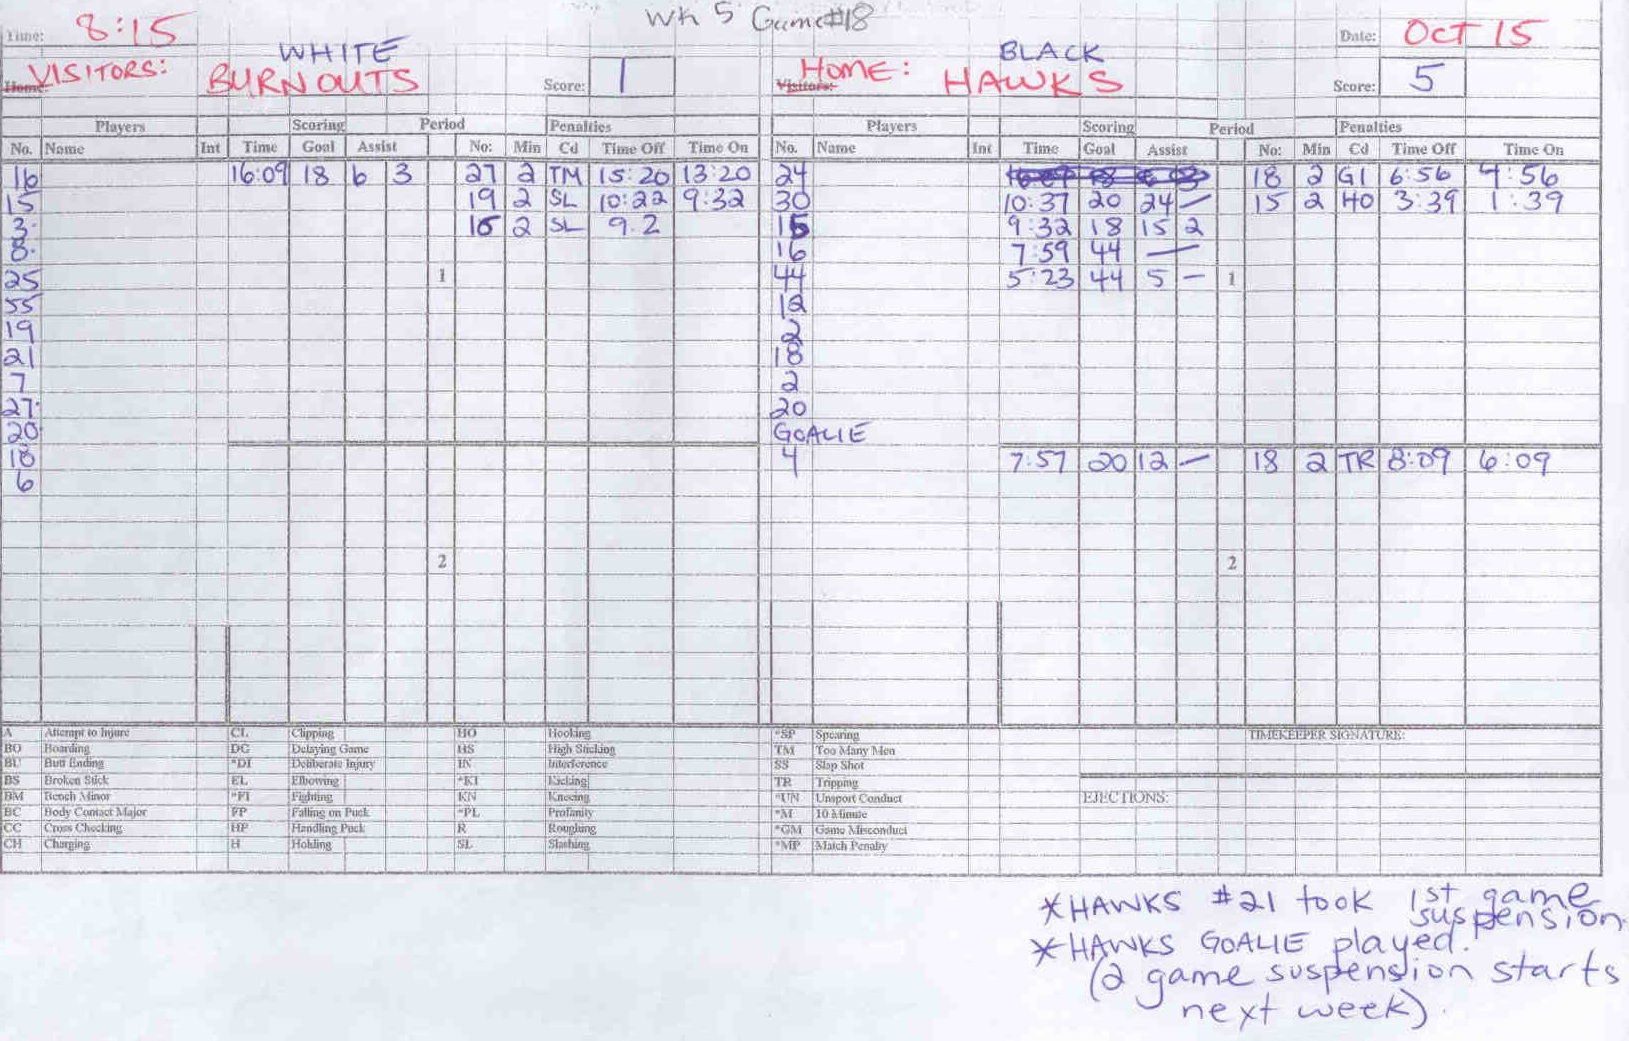 Wk 5 Game#18
Time: 8:15 Date: OCT 15
WHITE BLACK
Home: VISITORS: BURNOUTS Score: 1 Visitors: HOME: HAWKS Score: 5
Players Scoring Period Penalties Players Scoring Period Penalties
No. Name Int Time Goal Assist No: Min Cd Time Off Time On No. Name Int Time Goal Assist No: Min Cd Time Off Time On
16 16:09 18 6 3 27 2 TM 15:20 13:20 24 18 2 GI 6:56 4:56
15 19 2 SL 10:22 9:32 30 10:37 20 24 — 15 2 HO 3:39 1:39
3. 2 SL 9.2 9:32 18 15 2
8. 16 7:59 44 —
25 1 44 5:23 44 5 — 1
55 12
19 2
21 18
7 2
27. 20
20 GOALIE
18 4 7:57 20 12 — 18 2 TR 8:09 6:09
6
2 2
A Attempt to Injure CL Clipping HO Hooking *SP Spearing TIMEKEEPER SIGNATURE:
BO Boarding DG Delaying Game HS High Sticking TM Too Many Men
BU Butt Ending *DI Deliberate Injury IN Interference SS Slap Shot
BS Broken Stick EL Elbowing *KI Kicking TR Tripping
BM Bench Minor *FI Fighting KN Kneeing *UN Unsport Conduct EJECTIONS:
BC Body Contact Major FP Falling on Puck *PL Profanity *M 10 Minute
CC Cross Checking HP Handling Puck R Roughing *GM Game Misconduct
CH Charging H Holding SL Slashing *MP Match Penalty
*HAWKS #21 took 1st game
suspension.
*HAWKS GOALIE played.
(2 game suspension starts
next week).